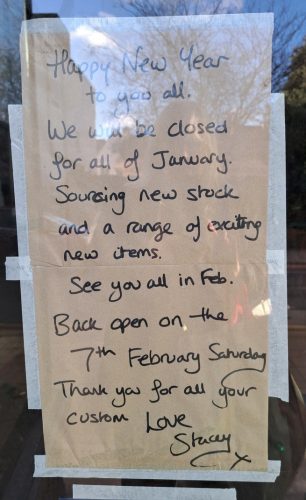 Happy New Year
to you all.
We will be closed
for all of January.
Sourcing new stock
and a range of exciting
new items.
See you all in Feb.
Back open on the
7th February Saturday
Thank you for all your
custom Love
Stacey x